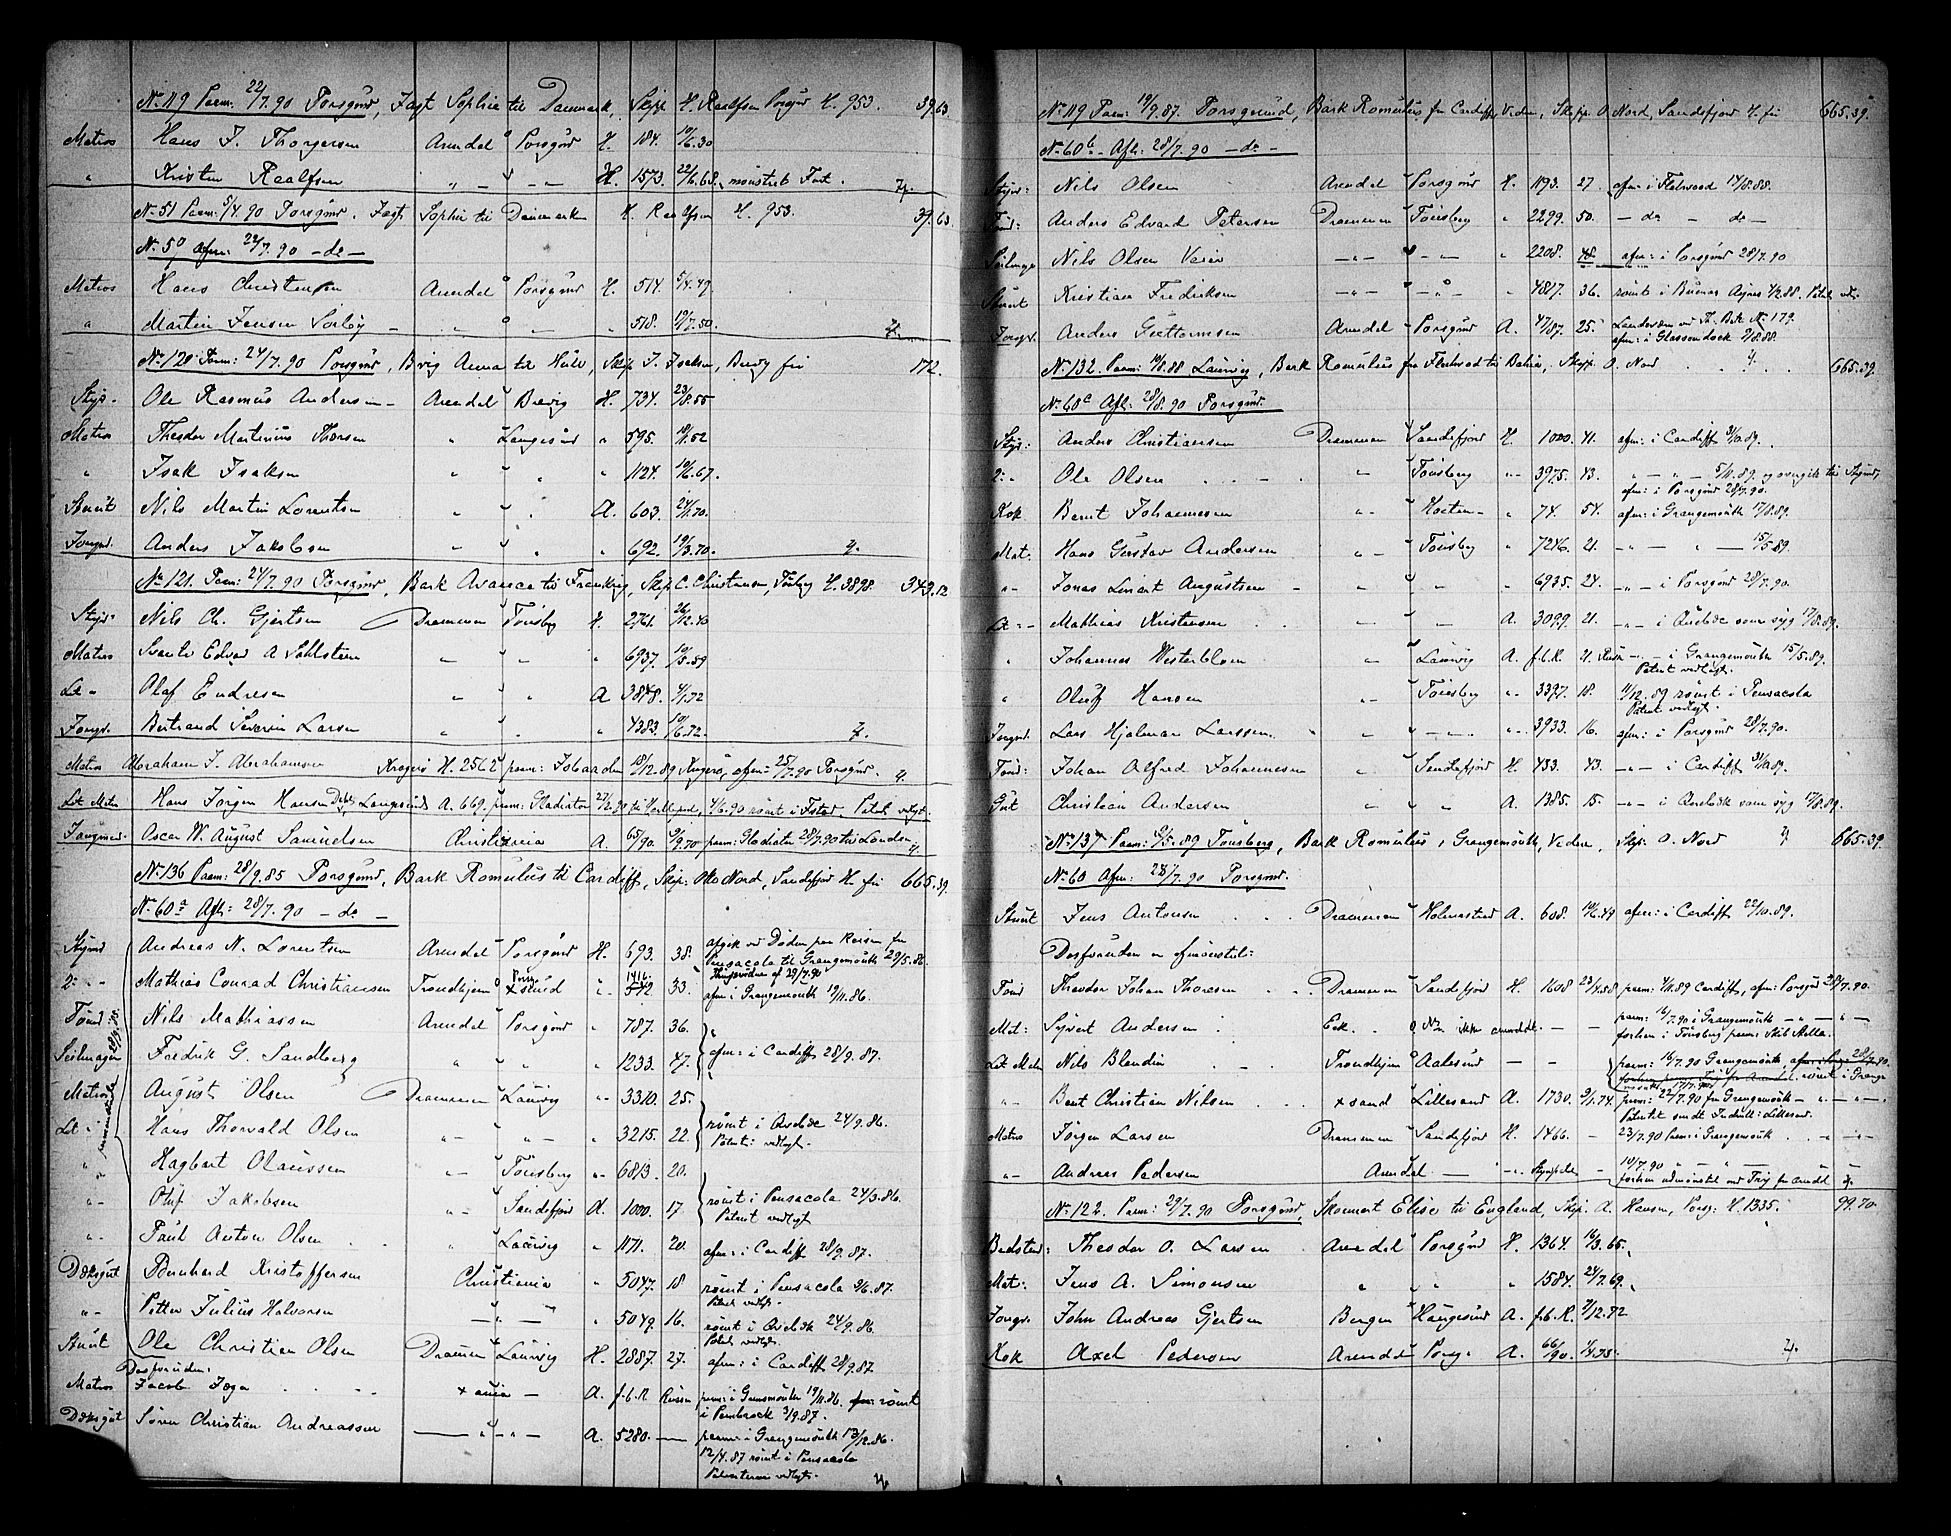 No 119 Paam: 22/7.90 Porsgrund, Jagt Sophie til Danmark, Skipp. H. Raalfsen Porsgrd H. 953. 39.63
Matros Hans J. Thorgersen Arendal Porsgrd H. 184. 10/6.30
" Kristen Raalfsen " — " — — H. 1573. 22/6.68. mønstret Fart.
No 51 Paam: 5/4.90 Porsgrund. Jagt Sophie til Danmark H. Raalfsen H. 953. 39.63
No 50 Afm: 22/7.90 — do —
Matros Hans Christensen Arendal Porsgrund H. 514. 5/4.49
" Martin Jensen Sorby — " " " 518. 19/7.50.
No 120 Paam: 24/7.90 Porsgrund, Brig Anna til Hull, Skip J. Isaksen, Brevig fri 172.
Styr. Ole Rasmus Andersen — Arendal Brevig H. 734. 23/8.55
Matros Theodor Martinius Thorsen " Langesund " 595. 10/1.52
" Isak Isaksen " " " 1124. 10/6.67.
Stuert Nils Martin Lorentsen " " A. 603. 24/1.70.
Jungm. Anders Jakobsen " " " 692. 19/3.70.
No 121. Paam: 24/7.90 Porsgrund, Bark Avance til Frankrig, Skip C. Christensen, Tønsbg H. 3898. 343.12
Styr. Nils Ch. Gjertsen Drammen Tønsbg H. 2761. 26/12.40
Matros Edvard A Sahlsteen " " " 6937. 10/5.59
Let " Olaf Endresen " " A 3848. 4/1.72
Jungm. Bertrand Severin Larsen " " " 4383. 10/6.72.
Matros Abraham J. Abrahamsen Kragerø H. 2562 paam: 18/12.89 Kragerø, afm: 25/7.90 Porsgrd.
Let Matr Hans Jørgen Hansen Langesund A. 669. paam: Gladiator 27/2.90 til Hartlepool, 4/6.90 rømt i Patent vedlagt.
Jungmand. Oscar W. August Samuelsen Christiania A. 65/90. 9/9.70 paam: Gladiator 28/7.90 til London
No 136 Paam: 28/9.85 Porsgrund, Bark Romulus til Cardiff, Skip: Otto Nord, Sandefjord H. fri 665.39.
No 60a Afm: 28/7.90 — do —
Styrmd Andreas N. Lorentsen Arendal Porsgrund H. 693. 38. afgik ved Døden paa Reisen fra Pensacola til Grangemouth 29/5.86.
2. " Mathias Conrad Christiansen Trondhjem " 1416. 33. afm: i Grangemouth 19/11.86.
Tømd Nils Mathiassen Arendal Porsgrund " 787. 36.
Seilmager Fredrik G. Sandberg " " " 1233. 47. afm: i Cardiff 28/9.87.
Matros August Olsen Drammen Laurvig " 3310. 25.
Let " Hans Thorvald Olsen " " " 3215. 22. rømt i 24/9.86. Patent: vedlagt.
" Hagbart Olaussen " Tønsberg " 6813. 20.
" Oluf Jakobsen " Sandefjord A. 1000. 17. rømt i Pensacola 24/3.86. Patent vedlagt
" Paul Anton Olsen " Laurvig " 1171. 20. afm: i Cardiff 28/9.87.
Dæksgut Bernhard Kristoffersen Christiania " 5047. 18 rømt i Pensacola 9/6.87. Patent vedlagt.
" Petter Julius Halvorsen — " — " 5049. 16. rømt i 24/9.86. Patent vedlagt.
Stuert Ole Christian Olsen Drammen Laurvig H. 2887. 27. afm: i Cardiff 28/9.87
Desforuden:
Matros Jacob A. f.b.R Russen, paam: i Grangemouth 19/11.86. rømt i Pembrock 3/9.87.
Dæksgut Søren Christian Andreassen — " — " — A. 5280. — paam: i Grangemouth 13/12.86. 12/4.87 rømt i Pensacola Patenterne vedlagt.
No 119 Paam: 19/9.87. Porsgrund, Bark Romulus fra Cardiff, Videre, Skipp. O. Nord, Sandefjord H. fri 665.39.
No 60b Afm: 28/7.90 — do —
Styr: Nils Olsen Arendal Porsgrund H. 1193. 27. afm: i Fleetwood 14/8.88.
Tømd: Anders Edvard Petersen Drammen Tønsberg " 2299. 50. — do — do —
Seilmgr Nils Olsen Veier — " — " — " — " 2208. 48. afm: i Porsgrund 28/7.90
Stuert Kristian Fredriksen — " — — " — " 4817. 36. rømt i Buenos Ayres 4/2.88. Patent vdl.
Jungm. Anders Guttormsen Arendal Porsgrund A. 47/87. 25. afm: i Glassondock 9/8.88.
No 132. Paam: 10/8.88 Laurvig, Bark Romulus fra Fleetwood til Bahia, Skipp. O. Nord 665.39.
No 60c Afm: 28/8.90 Porsgrund.
Styr: Anders Christiansen Drammen Sandefjord H. 1000. 41. afm: i Cardiff 31/10.89.
2: " Ole Olsen " Tønsberg " 3975. 43. " — " — 5/11.89 og overgik til Styrmd, afm: i Porsgrund 28/7.90.
Kok Bernt Johannesen " Horten " 74. 54. afm: i Grangemouth 17/8.89.
Mat. Hans Gustav Andersen " Tønsbg " 7246. 21. " — " — 15/5.89.
" Jonas Linert Augustsen " " " 6935. 24. — " — i Porsgrund 28/7.90.
Let " Mathias Kristensen " " A. 3099. 21. — " — i som syg 17/8.89.
" Johannes Westerblom " Laurvig A. f.b.R. 21. — " — i Grangemouth 15/5.89. Patent vedlagt.
" Oluf Hansen " Tønsberg " 3397. 18. 11/12.89 rømt i Pensacola Patent vedlagt.
Jungm. Lars Hjalmar Larssen. " — " — " 3933. 16. afm: i Porsgrund 28/7.90.
Tømd: Johan Alfred Johannesen " Sandefjord H. 433. 43. — " — i Cardiff 31/10.89.
Gut Christian Andersen " " A. 1385. 15. — " — i som syg 17/8.89.
No 137 Paam: 9/5.89 Tønsberg, Bark Romulus, Grangemouth, Videre, Skip. O. Nord 665.39
No 60 Afm: 28/7.90 Porsgrund.
Stuert Jens Antonsen Drammen Holmestrand A. 608. 19/6.49 afm: i Cardiff 22/10.89.
Desforuden er afmønstret:
Tømd Theodor Johan Thoresen Drammen Sandefjord H. 1608 23/4.58 paam: 4/11.89 Cardiff, afm: Porsgrd 28/7.90.
Mat: Syvert Andersen Eek. No ikke anmeldt. — — paam: 16/7.90 i Grangemouth — " — " — forhen i Tønsberg paam: Skib Stella.
Let Matr Nils Blandin Trondhjem Aalesund — — paam: 16/7.90 Grangemouth, rømt i Grangemouth 17/7.90
" Bent Christian Nilsen xsand Lillesand A. 1730. 9/1.74. paam: 22/7.90 fra Grangemouth — " — " — Patentet sendt Lillesand.
Matros Jørgen Larsen Drammen Sandefjord H. 1466. — 23/7.90 Paam: i Grangemouth " — " —
" Andreas Pedersen Arendal — " — 10/7.90 " — " — forhen udmønstret med Frig fra Arendl
No 122. Paam: 29/7.90 Porsgrund, Skonnert Elise til England, Skip. A. Hansen, Porsg: H. 1335. 99.70
Bedstmd: Theodor O. Larsen Arendal Porsgrund H. 1364. 16/3.65.
Mat: Jens A. Simonsen " " " 1584. 24/7.69.
Jungm. John Andreas Gjertsen Bergen Haugesund A. f.b.R. 7/12.72
Kok Axel Pedersen Arendal Porsg. A. 66/90. 1/4.75.